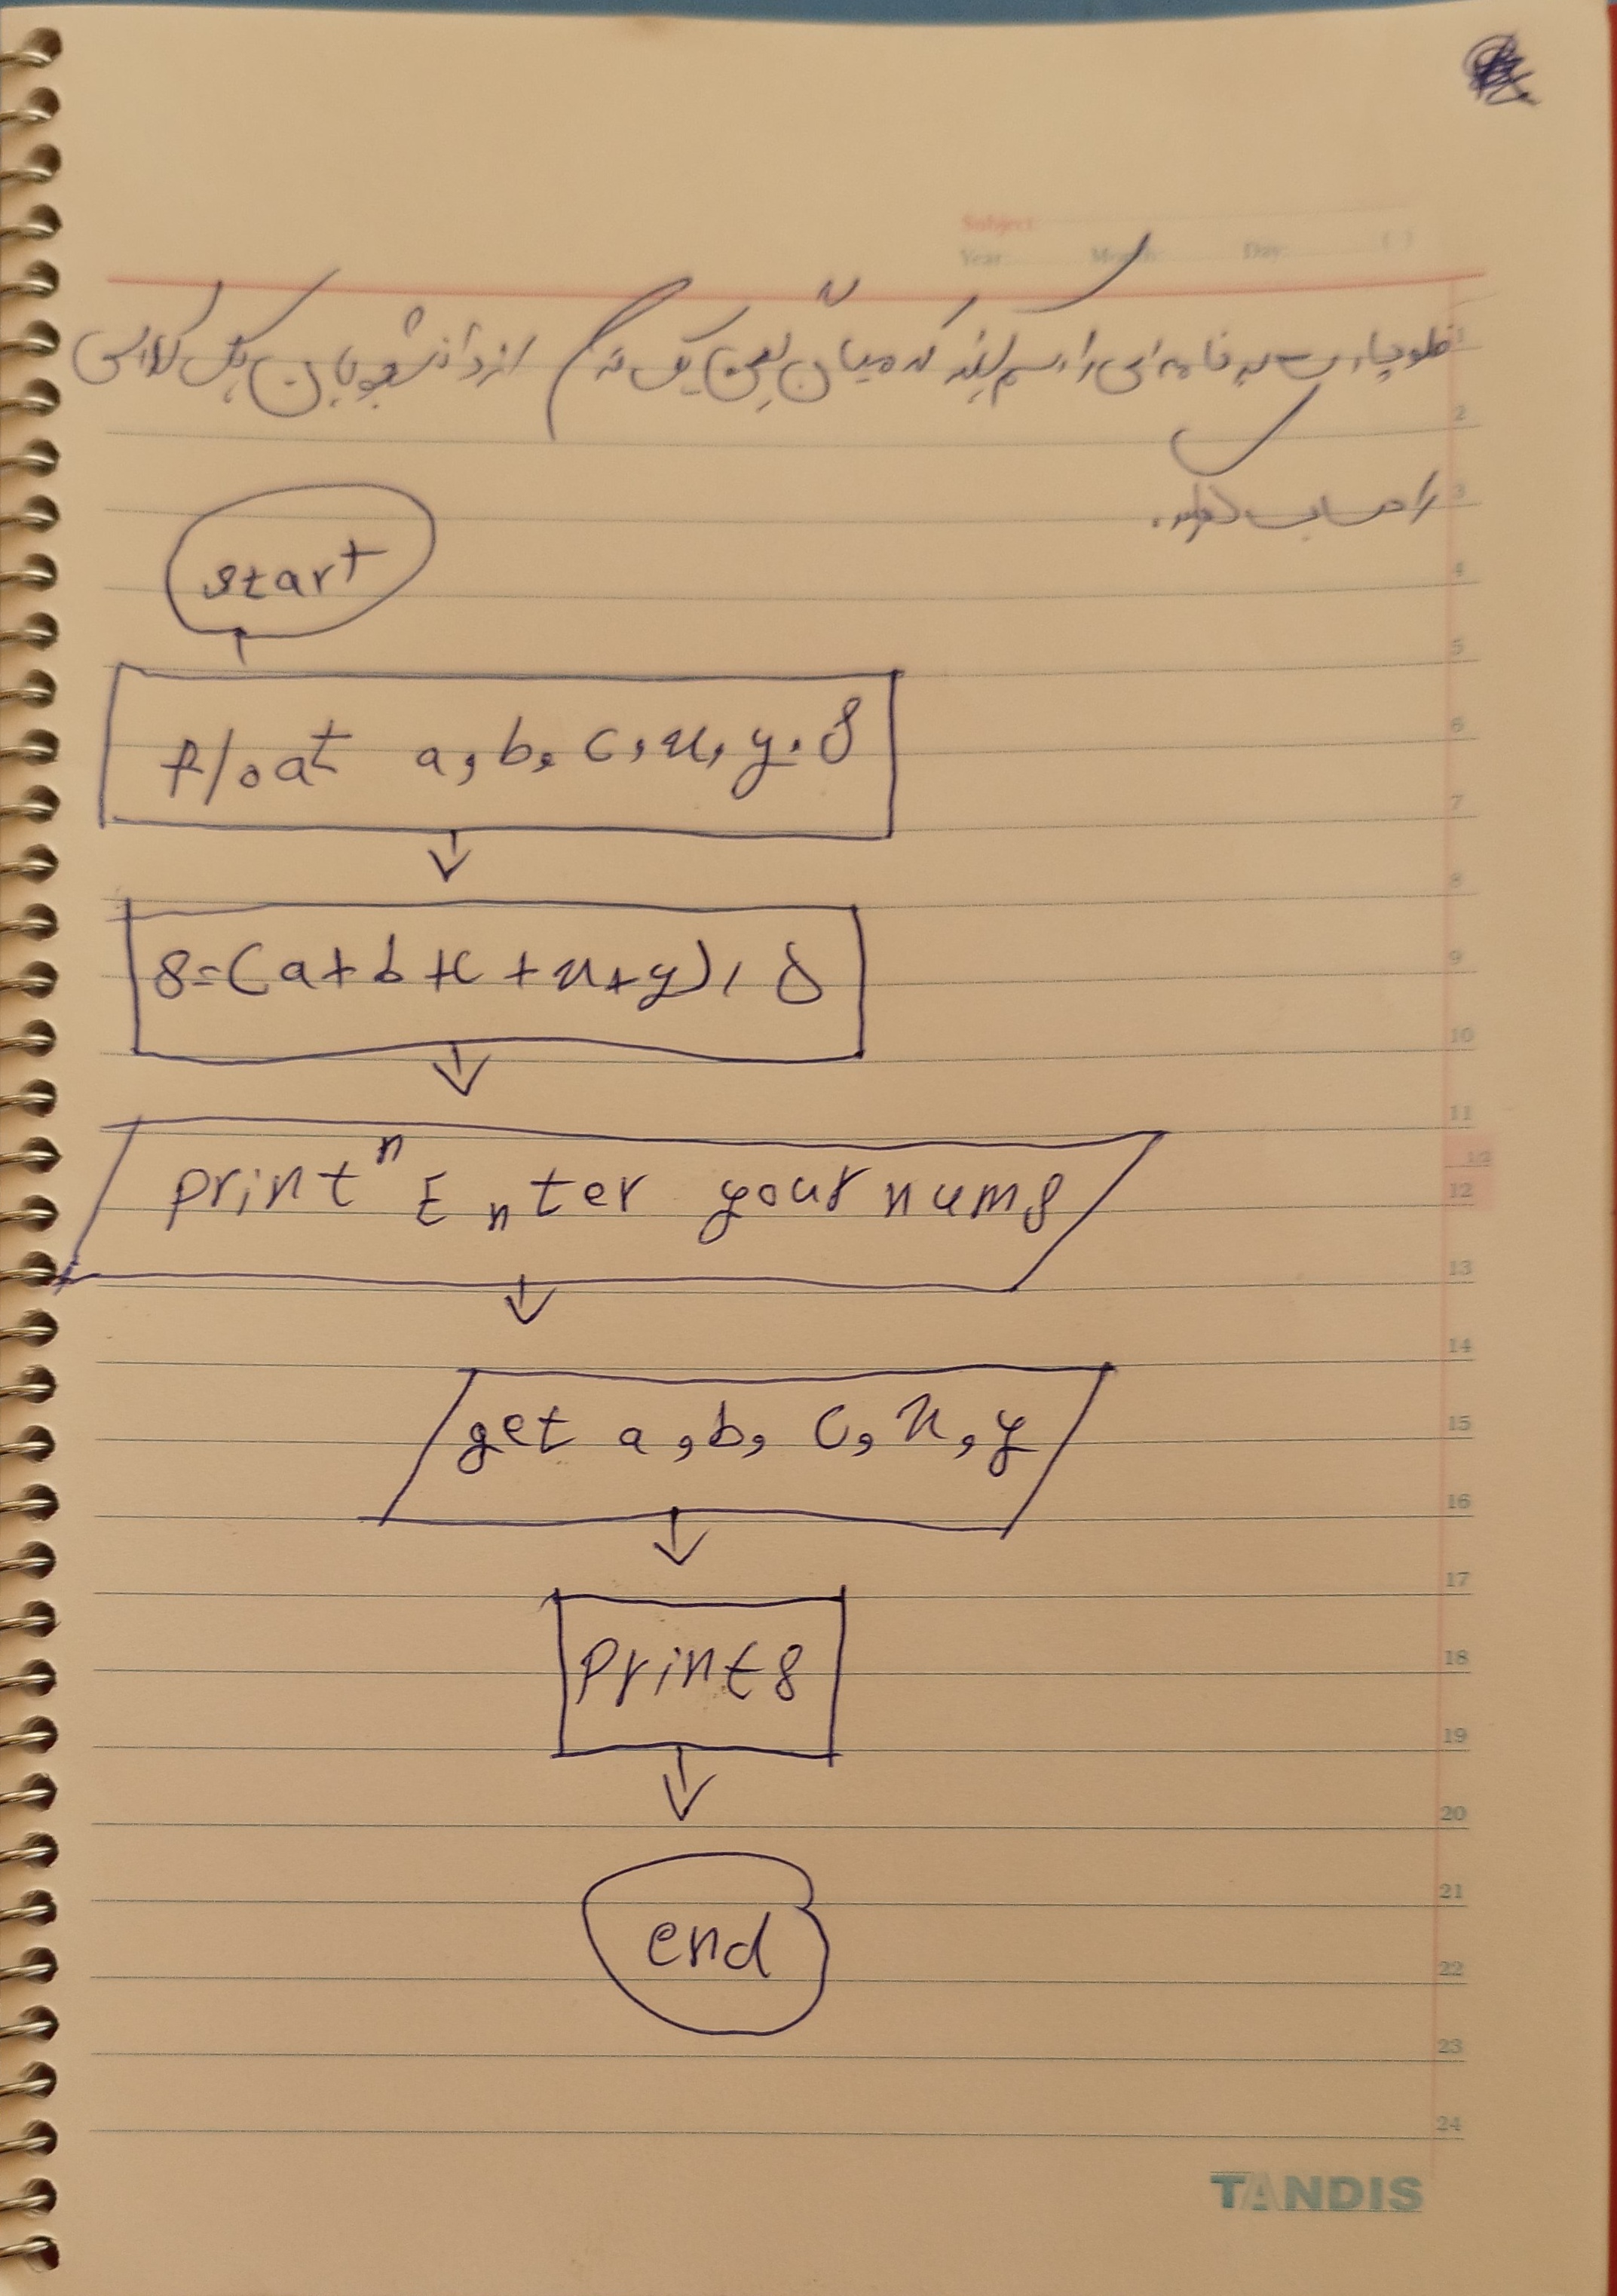 Subject:
Year: Month: Day: ( )
فلوچارت برنامه ای را رسم کنید که میانگین یک ترم از دانشجویان یک کلاس
را حساب کند.
start
float a, b, c, x, y, s
s=(a+b+c+x+y)/5
print "Enter your nums
get a, b, c, x, y
print s
end
1
2
3
4
5
6
7
8
9
10
11
12
13
14
15
16
17
18
19
20
21
22
23
24
TANDIS